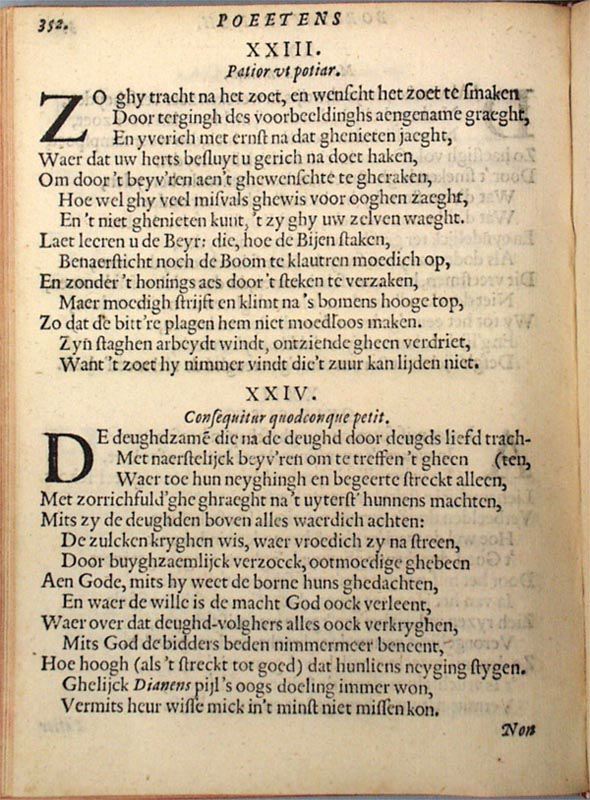 352. POEETENS
XXIII.
Patior vt potiar.
ZO ghy tracht na het zoet, en wenscht het zoet te smaken
Door tergingh des voorbeeldinghs aengename graeght,
En yverich met ernst na dat ghenieten jaeght,
Waer dat uw herts besluyt u gerich na doet haken,
Om door 't beyv'ren aen't ghewenschte te gheraken,
Hoe wel ghy veel misvals ghewis voor ooghen zaeght,
En 't niet ghenieten kunt, 't zy ghy uw zelven waeght.
Laet leeren u de Beyr: die, hoe de Bijen staken,
Benaersticht noch de Boom te klautren moedich op,
En zonder 't honings aes door't steken te verzaken,
Maer moedigh strijft en klimt na 's bomens hooge top,
Zo dat de bitt're plagen hem niet moedloos maken.
Zyn staghen arbeydt windt, ontziende gheen verdriet,
Want 't zoet hy nimmer vindt die't zuur kan lijden niet.
XXIV.
Consequitur quodconque petit.
DE deughdzamē die na de deughd door deugds liefd trach-
Met naerstelijck beyv'ren om te treffen 't gheen (ten,
Waer toe hun neyghingh en begeerte streckt alleen,
Met zorrichfuld'ghe ghraeght na't uyterst' hunnens machten,
Mits zy de deughden boven alles waerdich achten:
De zulcken kryghen wis, waer vroedich zy na streen,
Door buyghzaemlijck verzoeck, ootmoedige ghebeen
Aen Gode, mits hy weet de borne huns ghedachten,
En waer de wille is de macht God oock verleent,
Waer over dat deughd-volghers alles oock verkryghen,
Mits God de bidders beden nimmermeer beneent,
Hoe hoogh (als 't streckt tot goed) dat hunliens neyging stygen.
Ghelijck Dianens pijl 's oogs doeling immer won,
Vermits heur wisse mick in't minst niet missen kon.
Non